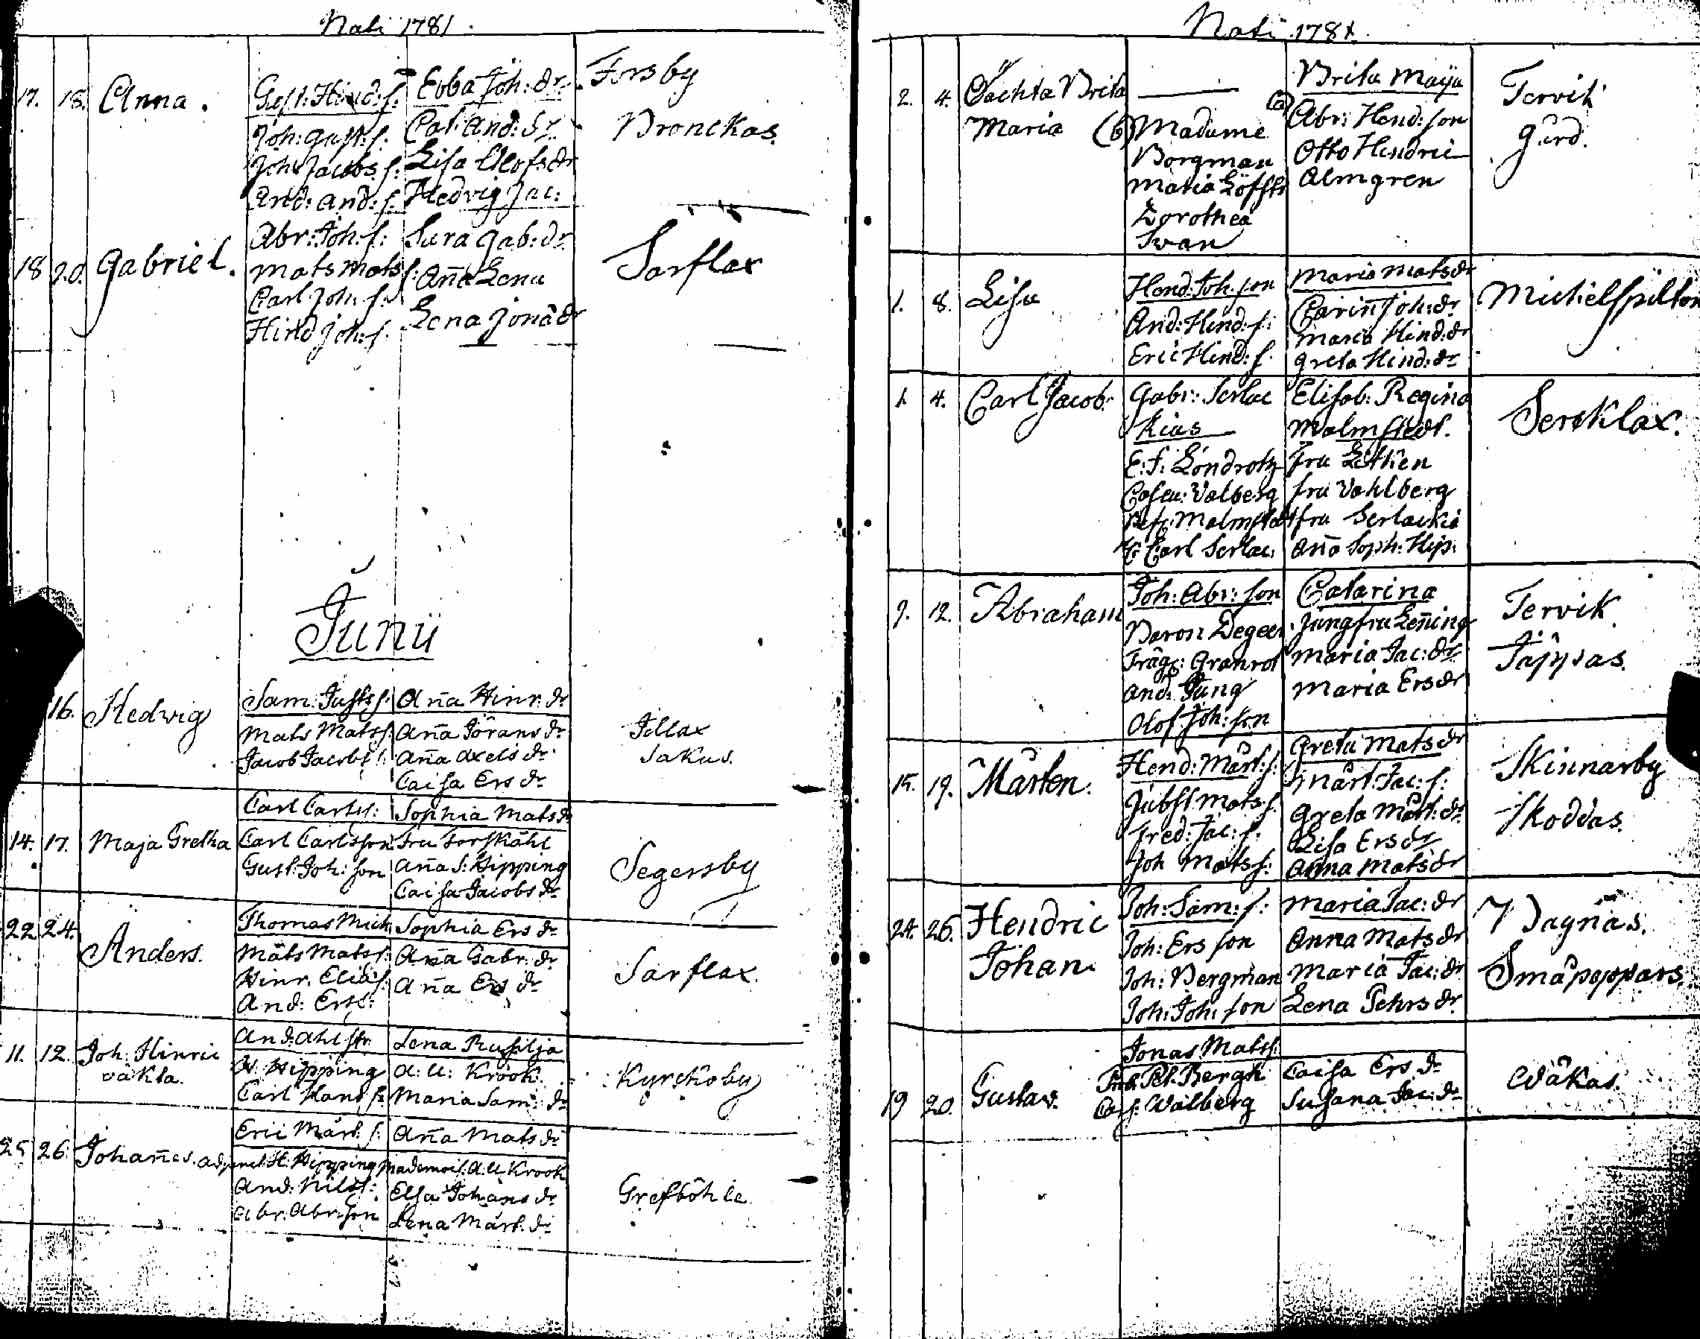 Nati 1781.
17. 18. Anna. Gust: Hind: s: Ebba Joh: dr. Forsby
Joh: Gust: s: Cat: And: dr. Bronckas.
Joh: Jacobs s: Lisa Olofs dr
And: And: s: Hedvig Jac:
18 20. Gabriel. Abr: Joh: s: Sara Gab: dr Sarflax
Mats Mats s: Aña Lena
Carl Joh: s: Lena Jonä dr
Hind Joh: s.
Junii
16. Hedwig Sam: Justs s: Aña Hinr: dr Illax
Mats Mats s: Aña Jörans dr Jakus.
Jacob Jacobs s: Aña Axels dr
Caisa Ers dr
14. 17. Maja Gretha Carl Carls s: Sophia Mats dr Segersby
Carl Carlsson Fru Forskåhl
Gust: Joh: son Aña S: Hipping
Caisa Jacobs dr
22 24. Anders. Thomas Mich Sophia Ers dr Sarflax.
Mats Mats s: Aña Gabr: dr
Hinr. Elias s: Aña Ers dr
And: Ers s:
11. 12. Joh. Hinric And: Ahlstr. Lena Rusilja Kyrckoby
oäkta. H. Hipping A: U: Krook
Carl Hans s: Maria Sam: dr
25 26. Johañes. Eric Mårt: s: Aña Mats dr Grefböhle.
H. Hipping Mademois. A. U Krook
And: Nils s: Elsa Johans dr
Abr. Abr: son Lena Mårt: dr
Nati 1781.
2. 4. Oächta Brita — Brita Maja Tervik
Maria (b) Madame (a) Abr: Hend: son gård.
Borgman Otto Hendric
Maria Löfstr Almgren
Dorothea
Svan
1. 8. Lisa Hend: Joh. son Maria Mats dr Michelspiltom
And: Hind: s: Carin Joh: dr
Eric Hind: s. Maria Hind: dr
Greta Hind: dr
1. 4. Carl Jacob: Gabr: Serlac Elisab: Regina Sercklax.
kius Malmstedt.
E: S: Löndrotz Fru Lethen
Valberg fru Vahlberg
Malmsted fru Serlackia
Carl Serlac: Aña Soph: Hip:
9. 12. Abraham Joh: Abr: son Catarina Tervik
Baron Degeer Jungfru Lening Jäppas.
Trägs: Granrot Maria Jac: dr
And: Ljung Maria Ers dr
Olof Joh: son
15. 19. Mårten. Hend: Mårt: s: Greta Mats dr Skinnarby
Jubst Mats s. Mårt: Jac: s: Skoddas.
Fred: Jac: s: Greta Mårt: dr
Joh Mats s: Lisa Ers dr
Anna Mats dr
24. 26. Hendric Joh: Sam: s: Maria Jac: dr Bagnäs.
Johan. Joh: Ers son Anna Mats dr Småpoppars.
Joh: Bergman Maria Jac: dr
Joh: Joh: son Lena Pehrs dr
19 20. Gustav. Jonas Mats s:
Bergh Caisa Ers dr Wåkas.
Walberg Susana Jac: dr